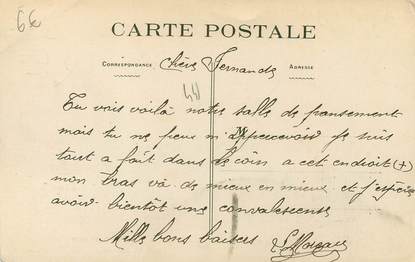 6€
CARTE POSTALE
CORRESPONDANCE
ADRESSE
Chère Fernande
Tu vois voilà notre salle de pansement
mais tu ne peux m'apercevoir je suis
tout a fait dans le coin a cet endroit (+)
mon bras va de mieux en mieux et j'espère
avoir bientôt une convalescence
Mille bons baisers